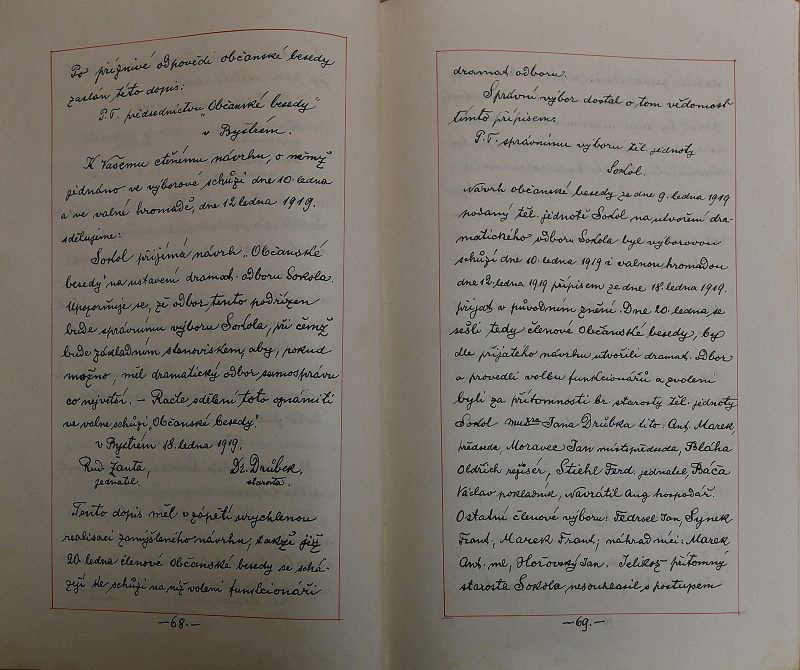 Po příznivé odpovědi občanské besedy
zaslán této dopis:
P.T. předsednictvu „Občanské besedy"
v Bystrém.
K Vašemu ctěnému návrhu, o němž
jednáno ve výborové schůzi dne 10. ledna
a ve valné hromadě, dne 12 ledna 1919.
sdělujeme:
Sokol přijímá návrh „Občanské
besedy" na ustavení dramat. odboru Sokola.
Upozorňuje se, že odbor tento podřízen
bude správnímu výboru Sokola, při čemž
bude základním stanoviskem, aby, pokud
možno, měl dramatický odbor samosprávu
co největší. – Račte sdělení toto oznámiti
ve valné schůzi „Občanské besedy".
v Bystrém 18. ledna 1919.
Rud Žanta, Dr. Drůbek,
jednatel. starosta.
Tento dopis měl v zápětí urychlenou
realisaci zamýšleného návrhu, takže již
20 ledna členové Občanské besedy se schá-
zejí ke schůzi na níž voleni funkcionáři
–68.–
dramat. odboru.
Správní výbor dostal o tom vědomost
tímto přípisem:
P.T. správnímu výboru těl. jednoty
Sokol.
Návrh občanské besedy ze dne 9. ledna 1919
podaný těl. jednotě Sokol na utvoření dra-
matického odboru Sokola byl výborovou
schůzí dne 10. ledna 1919 i valnou hromadou
dne 12. ledna 1919 přípisem ze dne 18. ledna 1919.
přijat v původním znění. Dne 20. ledna se
sešli tedy členové Občanské besedy, by
dle přijatého návrhu utvořili dramat. Odbor
a provedli volbu funkcionářů a zvoleni
byli za přítomnosti br. starosty těl. jednoty
Sokol Jana Drůbka tito: Ant. Marek,
předseda, Moravec Jan místopředseda, Bláha
Oldřich režiser, Stiehl Ferd. jednatel, Báča
Václav pokladník, Navrátil Aug hospodář.
Ostatní členové výboru: Fedrsel Jan, Synek
Frant, Marek Frant; náhradníci: Marek
Ant. ml, Hořovský Jan. Jelikož přítomný
starosta Sokola nesouhlasil s postupem
–69.–